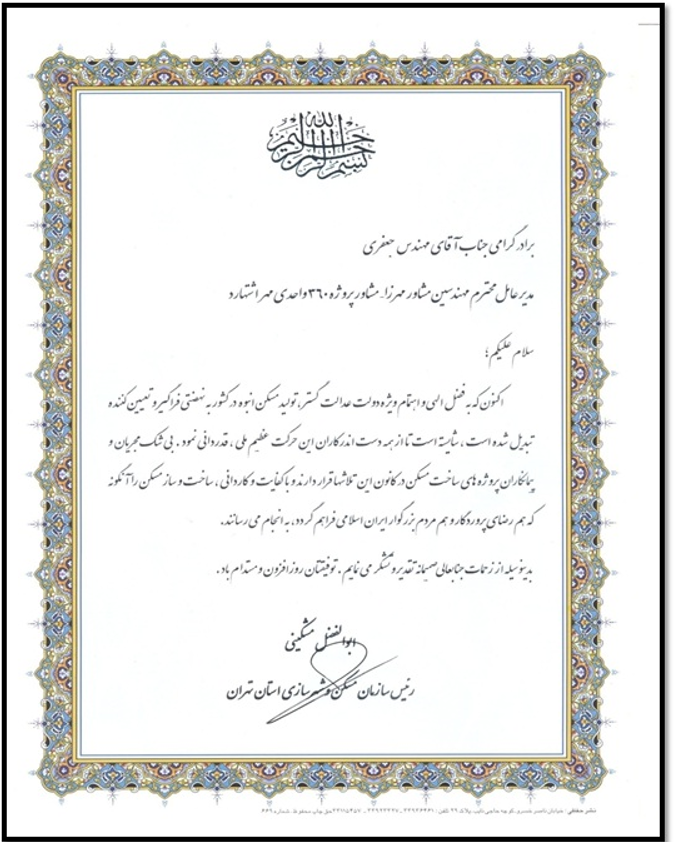 بسم الله الرحمن الرحیم
برادر گرامی جناب آقای مهندس جعفری
مدیرعامل محترم مهندسین مشاور مهرزاد مشاور پروژه ۳۶۰ واحدی مهر اشتهارد
سلام علیکم؛
اکنون که به فضل الهی و اهتمام ویژه دولت عدالت گستر، تولید مسکن انبوه در کشور به نهضتی فراگیر و تعیین کننده
تبدیل شده است، شایسته است تا از همه دست اندرکاران این حرکت عظیم ملی، قدردانی نمود. بی شک مجریان و
پیمانکاران پروژه های ساخت مسکن در کانون این تلاشها قرار دارند و با کفایت و کاردانی، ساخت و ساز مسکن را آنگونه
که هم رضای پروردگار و هم مردم بزرگوار ایران اسلامی فراهم گردد، به انجام می رسانند.
بدینوسیله از زحمات جنابعالی صمیمانه تقدیر و تشکر می نمایم. توفیقتان روز افزون و مستدام باد.
ابوالفضل مشکینی
رئیس سازمان مسکن و شهرسازی استان تهران
نشر حقانی: خیابان ناصرخسرو، کوچه حاجی نایب، پلاک ۲۹ تلفن: حق چاپ محفوظ. شماره ۶۴۹